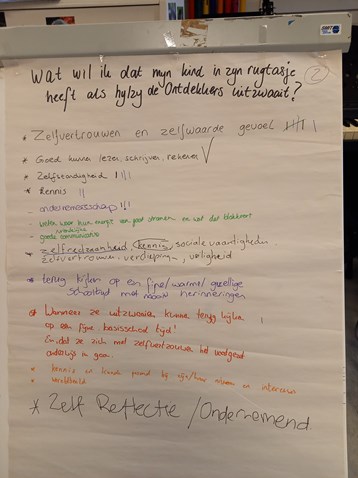 Wat wil ik dat mijn kind in zijn rugtasje
heeft als hij/zij de Ontdekkers uitzwaait?
2
* Zelfvertrouwen en zelfwaarde gevoel
* Goed kunnen lezen, schrijven, rekenen
* Zelfstandigheid
* Kennis
- ondernemerschap
- weten waar hun energie van gaat stromen en wat dat
- goede communicatie
* zelfredzaamheid, kennis, sociale vaardigheden
zelfvertrouwen, verdieping, veiligheid
* terug kijken op een fijne/warme/gezellige
schooltijd met mooie herinneringen
* Wanneer ze uitzwaaien kunnen terug kijken
op een fijne basisschool tijd!
En dat ze zich met zelfvertrouwen het voortgezet
onderwijs in gaan.
* kennis en kunde passend bij zijn/haar niveau en interesse
*
* Zelf Reflectie / Ondernemend